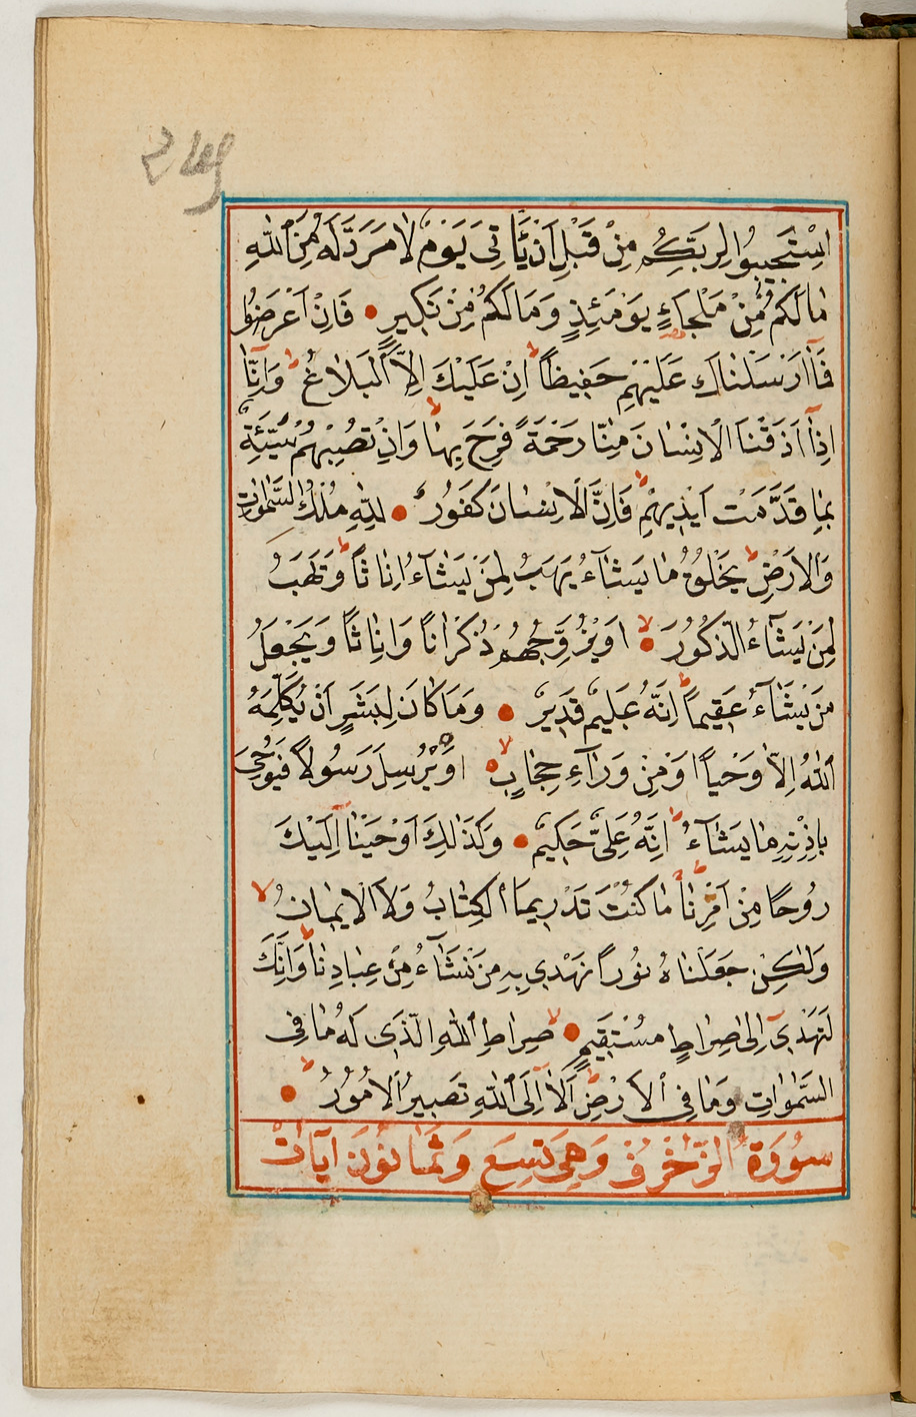 اِسْتَجِيبُوا لِرَبِّكُمْ مِنْ قَبْلِ اَنْ يَأْتِىَ يَوْمٌ لَا مَرَدَّ لَهُ مِنَ ٱللّٰهِ
مَا لَكُمْ مِنْ مَلْجَاءٍ يَوْمَئِذٍ وَمَا لَكُمْ مِنْ نَكِيرٍ فَاِنْ اَعْرَضُوا
فَمَٓا اَرْسَلْنَاكَ عَلَيْهِمْ حَفِيظًا اِنْ عَلَيْكَ اِلَّا ٱلْبَلَاغُ وَاِنَّٓا
اِذَٓا اَذَقْنَا الْاِنْسَانَ مِنَّا رَحْمَةً فَرِحَ بِهَا وَاِنْ تُصِبْهُمْ سَيِّئَةٌ
بِمَا قَدَّمَتْ اَيْدِيهِمْ فَاِنَّ الْاِنْسَانَ كَفُورٌ لِلّٰهِ مُلْكُ السَّمٰوَاتِ
وَالْاَرْضِ يَخْلُقُ مَا يَشَٓاءُ يَهَبُ لِمَنْ يَشَٓاءُ اِنَاثًا وَيَهَبُ
لِمَنْ يَشَٓاءُ الذُّكُورَ اَوْ يُزَوِّجُهُمْ ذُكْرَانًا وَاِنَاثًا وَيَجْعَلُ
مَنْ يَشَٓاءُ عَقِيمًا اِنَّهُ عَلِيمٌ قَدِيرٌ وَمَا كَانَ لِبَشَرٍ اَنْ يُكَلِّمَهُ
ٱللّٰهُ اِلَّا وَحْيًا اَوْ مِنْ وَرَٓاءِ حِجَابٍ اَوْ يُرْسِلَ رَسُولًا فَيُوحِىَ
بِاِذْنِهِ مَا يَشَٓاءُ اِنَّهُ عَلِىٌّ حَكِيمٌ وَكَذٰلِكَ اَوْحَيْنَٓا اِلَيْكَ
رُوحًا مِنْ اَمْرِنَا مَا كُنْتَ تَدْرِى مَا ٱلْكِتَابُ وَلَا الْاِيمَانُ
وَلٰكِنْ جَعَلْنَاهُ نُورًا نَهْدِى بِهِ مَنْ نَشَٓاءُ مِنْ عِبَادِنَا وَاِنَّكَ
لَتَهْدِىٓ اِلٰى صِرَاطٍ مُسْتَقِيمٍ صِرَاطِ ٱللّٰهِ الَّذِى لَهُ مَا فِى
السَّمٰوَاتِ وَمَا فِى ٱلْاَرْضِ اَلَٓا اِلَى ٱللّٰهِ تَصِيرُ الْاُمُورُ
سُورَةُ الزُّخْرُفِ وَهِىَ تِسْعَ وَثَمَانُونَ اٰيَاتٍ